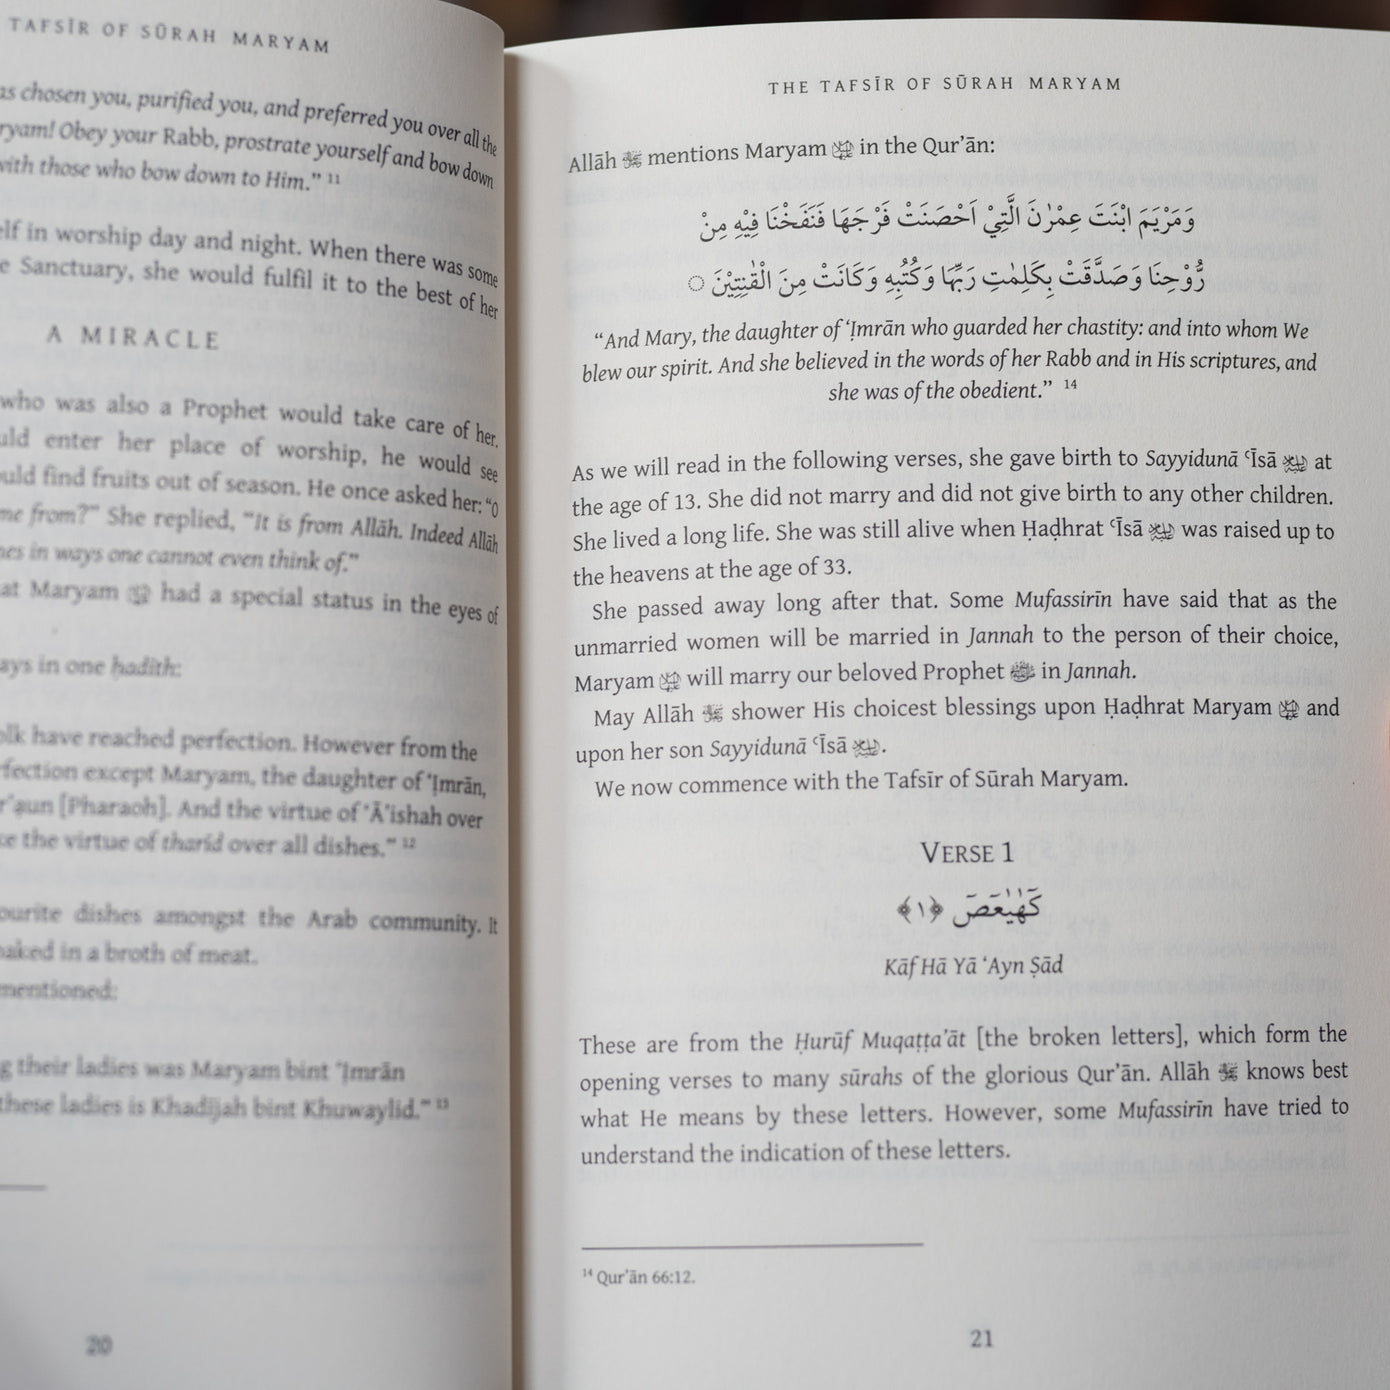 TAFSĪR OF SŪRAH MARYAM
as chosen you, purified you, and preferred you over all the
ryam! Obey your Rabb, prostrate yourself and bow down
with those who bow down to Him.” 11
elf in worship day and night. When there was some
e Sanctuary, she would fulfil it to the best of her
A MIRACLE
who was also a Prophet would take care of her.
uld enter her place of worship, he would see
ould find fruits out of season. He once asked her: “O
me from?” She replied, “It is from Allāh. Indeed Allāh
nes in ways one cannot even think of.”
at Maryam had a special status in the eyes of
ays in one ḥadīth:
olk have reached perfection. However from the
rfection except Maryam, the daughter of ʻĮmrān,
rʼaun [Pharaoh]. And the virtue of ʻĀʼishah over
ke the virtue of tharīd over all dishes.” 12
ourite dishes amongst the Arab community. It
oaked in a broth of meat.
mentioned:
g their ladies was Maryam bint ʻĮmrān
these ladies is Khadījah bint Khuwaylid.” 13
20
THE TAFSĪR OF SŪRAH MARYAM
Allāh ﷻ mentions Maryam in the Qur’ān:
وَمَرْيَمَ ابْنَتَ عِمْرٰنَ الَّتِيْٓ اَحْصَنَتْ فَرْجَهَا فَنَفَخْنَا فِيْهِ مِنْ
رُّوْحِنَا وَصَدَّقَتْ بِكَلِمٰتِ رَبِّهَا وَكُتُبِهٖ وَكَانَتْ مِنَ الْقٰنِتِيْنَ ۝
“And Mary, the daughter of ‘Įmrān who guarded her chastity: and into whom We
blew our spirit. And she believed in the words of her Rabb and in His scriptures, and
she was of the obedient.” 14
As we will read in the following verses, she gave birth to Sayyidunā ʿĪsā at
the age of 13. She did not marry and did not give birth to any other children.
She lived a long life. She was still alive when Ḥaḍhrat ʿĪsā was raised up to
the heavens at the age of 33.
She passed away long after that. Some Mufassirīn have said that as the
unmarried women will be married in Jannah to the person of their choice,
Maryam will marry our beloved Prophet ﷺ in Jannah.
May Allāh ﷻ shower His choicest blessings upon Ḥaḍhrat Maryam and
upon her son Sayyidunā ʿĪsā.
We now commence with the Tafsīr of Sūrah Maryam.
VERSE 1
كٓهٰيٰعٓصٓ ﴿١﴾
Kāf Hā Yā ‘Ayn Ṣād
These are from the Ḥurūf Muqaṭṭa’āt [the broken letters], which form the
opening verses to many sūrahs of the glorious Qur’ān. Allāh ﷻ knows best
what He means by these letters. However, some Mufassirīn have tried to
understand the indication of these letters.
14 Qur’ān 66:12.
21